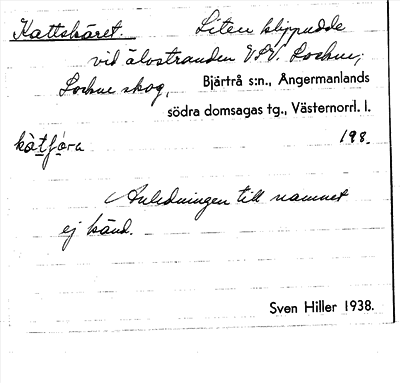 Kattskäret. Liten klippudde
vid älvstranden V.S.V. Lockne,
Lockne skog, Bjärtrå s:n., Ångermanlands
södra domsagas tg., Västernorrl. l.
198.
Anledningen till namnet
ej känd.
Sven Hiller 1938.